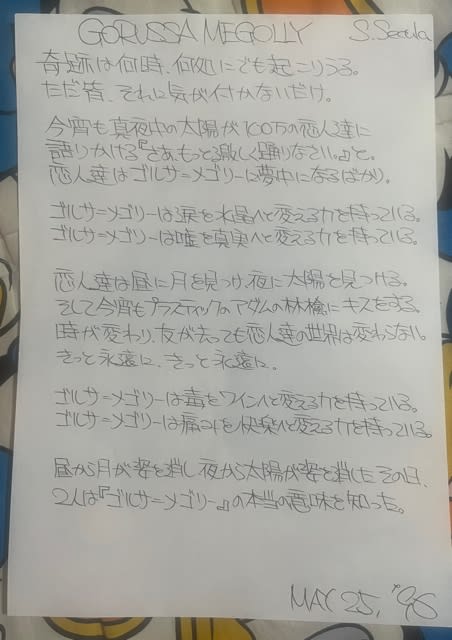 GORUSSA MEGOLLY S.Secula
奇跡は何時、何処にでも起こりうる。
ただ皆、それに気が付かないだけ。
今宵も真夜中の太陽が100万の恋人達に
語りかける『さあ、もっと激しく踊りなさい。』と。
恋人達はゴルサ=メゴリーに夢中になるばかり。
ゴルサ=メゴリーは涙を水晶へと変える力を持っている。
ゴルサ=メゴリーは嘘を真実へと変える力を持っている。
恋人達は昼に月を見つけ、夜に太陽を見つける。
そして今宵もプラスティックのアダムの林檎にキスをする。
時が変わり、友が去っても恋人達の世界は変わらない。
きっと永遠に、きっと永遠に。
ゴルサ=メゴリーは毒をワインへと変える力を持っている。
ゴルサ=メゴリーは痛みを快楽へと変える力を持っている。
昼から月が姿を消し、夜から太陽が姿を消したその日、
2人は『ゴルサ=メゴリー』の本当の意味を知った。
MAY 25, '96